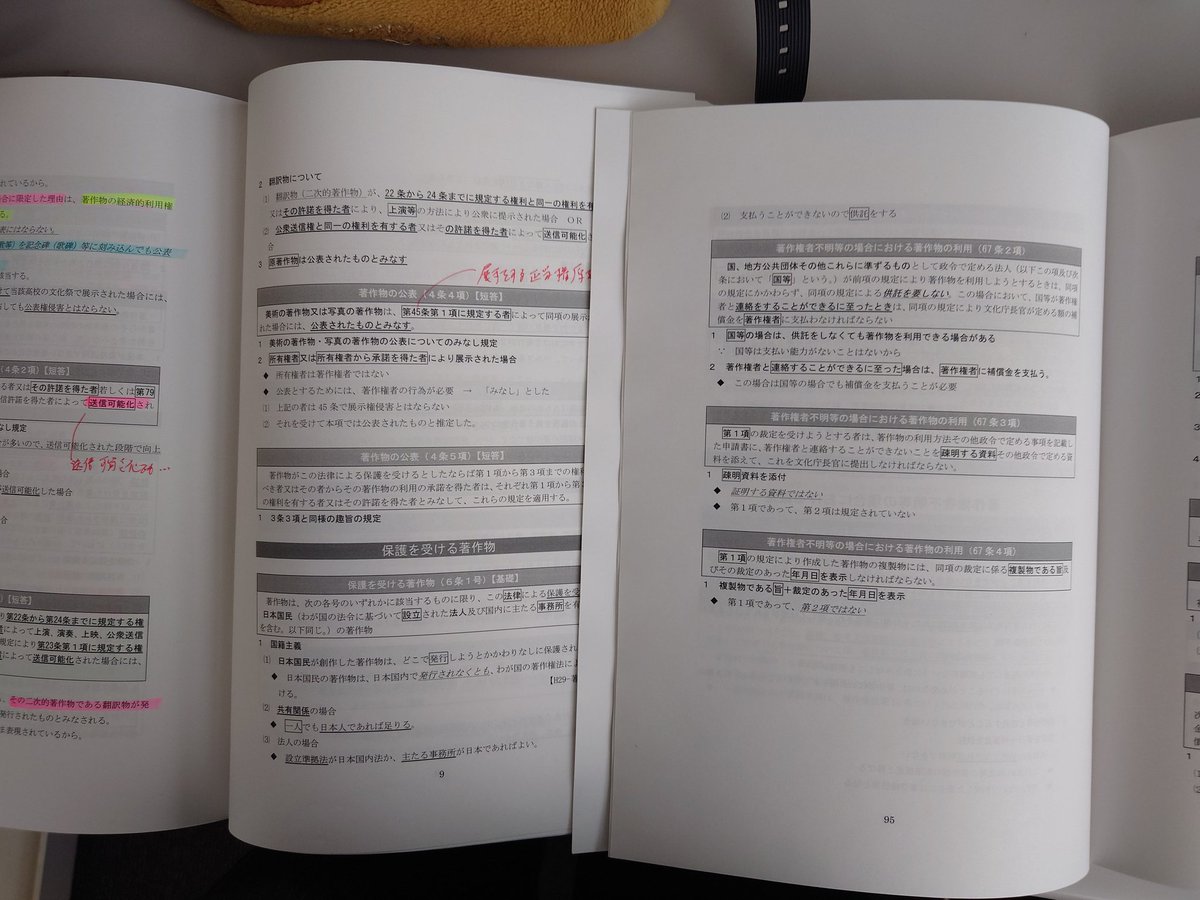 れているから。
合に限定した理由は、著作物の経済的利用権
る。
表にはならない。
歌等）を記念碑（歌碑）等に刻み込んでも公表
該当する。
けて当該高校の文化祭で展示された場合には、
しても公表権侵害とはならない。
4条2項）【短答】
る者又はその許諾を得た者若しくは第79
信許諾を得た者によって送信可能化され
なし規定
合が多いので、送信可能化された段階で向上
場合
送信可能化した場合
合
】【短答】
第22条から第24条までに規定する権
によって上演、演奏、上映、公衆送信
規定により第23条第1項に規定する権
によって送信可能化された場合には、
、その二次的著作物である翻訳物が発
発行されたものとみなされる。
表現されているから。
2 翻訳物について
⑴ 翻訳物（二次的著作物）が、22条から24条までに規定する権利と同一の権利を有
又はその許諾を得た者により、上演等の方法により公衆に提示された場合 OR
⑵ 公衆送信権と同一の権利を有する者又はその許諾を得た者によって送信可能化さ
合
3 原著作物は公表されたものとみなす
著作物の公表（4条4項）【短答】
美術の著作物又は写真の著作物は、第45条第1項に規定する者によって同項の展示
れた場合には、公表されたものとみなす。
1 美術の著作物・写真の著作物の公表についてのみなし規定
2 所有権者又は所有権者から承諾を得た者により展示された場合
◆ 所有権者は著作権者ではない
◆ 公表とするためには、著作権者の行為が必要 → 「みなし」とした
⑴ 上記の者は45条で展示権侵害とはならない
⑵ それを受けて本項では公表されたものと推定した。
著作物の公表（4条5項）【短答】
著作物がこの法律による保護を受けるとしたならば第1項から第3項までの権利
べき者又はその者からその著作物の利用の承諾を得た者は、それぞれ第1項から第
の権利を有する者又はその許諾を得た者とみなして、これらの規定を適用する。
1 3条3項と同様の趣旨の規定
保護を受ける著作物
保護を受ける著作物（6条1号）【基礎】
著作物は、次の各号のいずれかに該当するものに限り、この法律による保護を受
日本国民（わが国の法令に基づいて設立された法人及び国内に主たる事務所を有
を含む。以下同じ。）の著作物
1 国籍主義
⑴ 日本国民が創作した著作物は、どこで発行しようとかかわりなしに保護され
◆ 日本国民の著作物は、日本国内で発行されなくとも、わが国の著作権法によ
ける。
【H29-著
⑵ 共有関係の場合
◆ 一人でも日本人であれば足りる。
⑶ 法人の場合
◆ 設立準拠法が日本国内法か、主たる事務所が日本であればよい。
9
⑵ 支払うことができないので供託をする
著作権者不明等の場合における著作物の利用（67条2項）
国、地方公共団体その他これらに準ずるものとして政令で定める法人（以下この項及び次
条において「国等」という。）が前項の規定により著作物を利用しようとするときは、同項
の規定にかかわらず、同項の規定による供託を要しない。この場合において、国等が著作権
者と連絡をすることができるに至ったときは、同項の規定により文化庁長官が定める額の補
償金を著作権者に支払わなければならない
1 国等の場合は、供託をしなくても著作物を利用できる場合がある
∵ 国等は支払い能力がないことはないから
2 著作権者と連絡することができるに至った場合は、著作権者に補償金を支払う。
◆ この場合は国等の場合でも補償金を支払うことが必要
著作権者不明等の場合における著作物の利用（67条3項）
第1項の裁定を受けようとする者は、著作物の利用方法その他政令で定める事項を記載し
た申請書に、著作権者と連絡することができないことを疎明する資料その他政令で定める資
料を添えて、これを文化庁長官に提出しなければならない。
1 疎明資料を添付
◆ 証明する資料ではない
◆ 第1項であって、第2項は規定されていない
著作権者不明等の場合における著作物の利用（67条4項）
第1項の規定により作成した著作物の複製物には、同項の裁定に係る複製物である旨及
びその裁定のあった年月日を表示しなければならない。
1 複製物である旨＋裁定のあった年月日を表示
◆ 第1項であって、第2項ではない
95